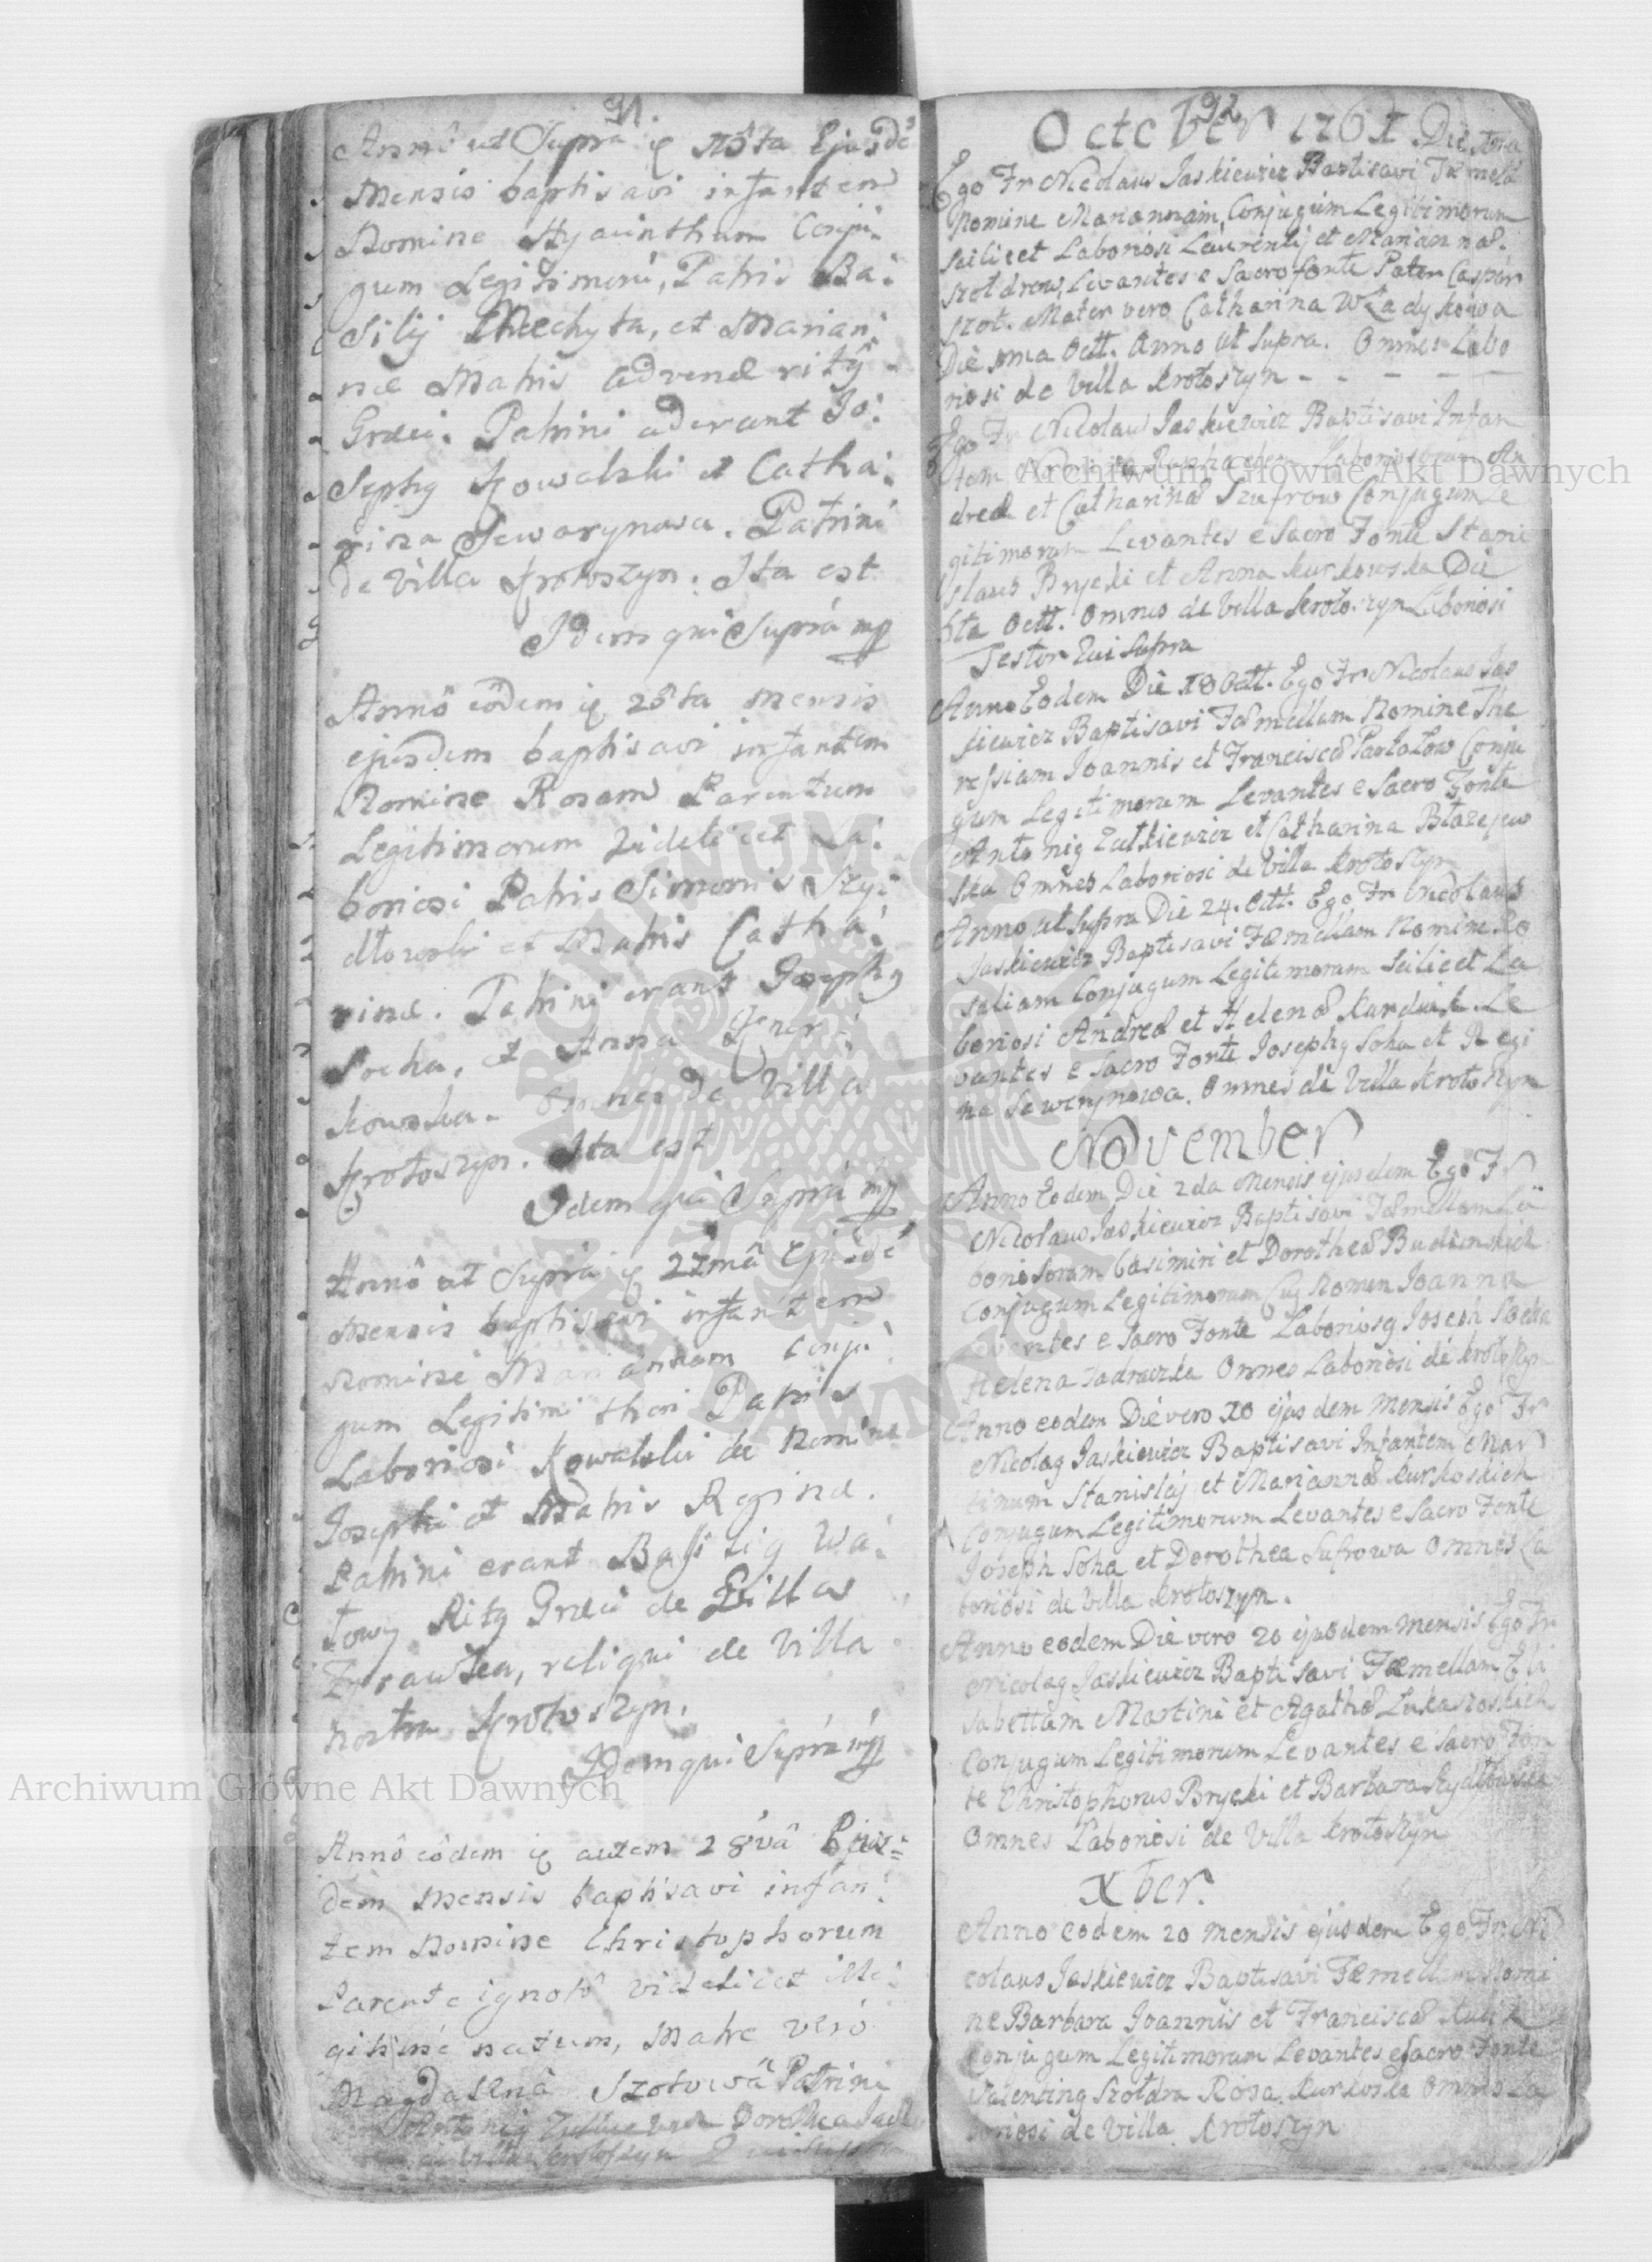 91.
Annô ut Supra
Mensis baptisavi infantem
Nomine Hyacinthum Conju-
gum Legitimorũ, Patris Ba-
silij Mechyta, et Marian-
næ Matris ad
Græci. Patrini aderant Jo-
sephg Kowalski et Catha-
rina Sewerynowa. Patrini
de Villa Krotoszyn. Ita est
Idem qui Supra mp
Annô eôdem 25ta mensis
ejusdem baptisavi infantem
Nomine Rosam Parentum
Legitimorum Videlicet La-
boriosi Patris Simonis Szy-
dłowski et Matris Catha-
rinæ. Patrini erant Josephg
Socha, et Anna
kowska. Omnes de Villa
Krotoszyn. Ita est
Idem qui Supra mp
Annô ut Supra 27mâ Ejusdẽ
Mensis baptisavi infantem
Nomine Mariannam Conju-
gum Legitimorũ Patris
Laboriosi Kowalski de Nomine
Josephi et Matris Reginæ.
Patrini erant Wa-
Ritg Græci de Villa
reliqui de Villa
nostra Krotoszyn.
Idem qui Supra mp
Annô eôdem autem 28vâ Ejus=
dem Mensis baptisavi infan-
tem Nomine Christophorum
Parente ignotô videlicet ille-
gitimè natum, Matre verò
Magdalenâ Szotowâ Patrini
Antonig Dorothea
de Villa Krotoszyn Qui supra
92
October 1761. Die
Ego Fr Nicolaus Jaskiewicz Baptisavi Fæmellã
Nomine Mariannam, Conjugum Legitimorum
Scilicet Laboriosi Laurentij et Mariannæ
Szotdrow, Levantes e Sacro fonte Pater Caspar
Szot. Mater vero Catharina Władykowa
Die Octt. Anno ut Supra. Omnes Labo
riosi de Villa Krotoszyn - - - - -
Ego Fr Nicolaus Jaskiewicz Baptisavi Infan
tem Laboriosorum An
dreæ et Catharinæ Szufrow Conjugum Le
gitimorum Levantes e Sacro Fonte Stani
slaus Brycki et Anna Kurkowska Die
6ta Octt. Omnes de Villa Krotoszyn Laboriosi
Testor Qui Supra
Anno Eodem Die 18 Octt. Ego Fr Nicolaus Jas
kiewicz Baptisavi Fæmellam Nomine The
ressiam Joannis et Franciscæ Conju
gum Legitimorum Levantes e Sacro Fonte
Antonig et Catharina Błazejew
ska Omnes Laboriosi de Villa Krotoszyn
Anno ut Supra Die 24. Octt. Ego Fr Nicolaus
Jaskiewicz Baptisavi Fæmellam Nomine Ro
saliam Conjugum Legitimorum Scilicet La
boriosi Andreæ et Helenæ Le
vantes e Sacro Fonte Josephg Soha et Regi
na Sewerynowa. Omnes de Villa Krotoszyn
November
Anno Eodem Die 2da Mensis ejusdem Ego Fr
Nicolaus Jaskiewicz Baptisavi Fæmellam La
boriosorum Casimiri et Dorotheæ Budzinskich
Conjugum Legitimorum Cug Nomen Joanna
Levantes e Sacro Fonte Laboriosg Joseph Socha
Helena Omnes Laboriosi de Krotoszyn
Anno eodem Die vero 10 ejusdem Mensis Ego Fr
Nicolag Jaskiewicz Baptisavi Infantem Mar
tinum Stanislaj et Mariannæ Kurkoskich
Conjugum Legitimorum Levantes e Sacro Fonte
Joseph Soha et Dorothea Sufrowa Omnes La
boriosi de Villa Krotoszyn.
Anno eodem Die vero 20 ejusdem Mensis Ego Fr
Nicolag Jaskiewicz Baptisavi Fæmellam Eli
sabettam Martini et Agathæ Lukaszoskich
Conjugum Legitimorum Levantes e Sacro Fon
te Christophorus Brycki et Barbara Szydłowska
Omnes Laboriosi de Villa Krotoszyn
Xber.
Anno eodem 20 mensis ejusdem Ego Fr Ni
colaus Jaskiewicz Baptisavi Fæmellam Nomi
ne Barbara Joannis et Franciscæ
Conjugum Legitimorum Levantes e Sacro Fonte
Valenting Szotdra Rosa Kurkoska Omnes La
boriosi de Villa Krotoszyn
Archiwum Główne Akt Dawnych
Archiwum Główne Akt Dawnych
ARCHIWUM GŁÓWNE AKT DAWNYCH